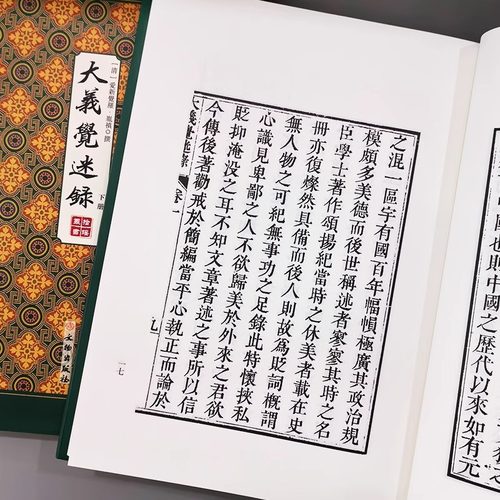 大義覺迷録
下册
〔清〕愛新覺羅·胤禛◎撰
拾瑶
叢書
文物出版社
也則中國之歷代以來如有元
之混一區宇有國百年幅幀極廣其政治規
模頗多美德而後世稱述者寥寥其時之名
臣學士著作頌揚紀當時之休美者載在史
冊亦復燦然具備而後人則故為貶詞概謂
無人物之可紀無事功之足錄此特懷挾私
心識見卑鄙之人不欲歸美於外來之君欲
貶抑淹沒之耳不知文章著述之事所以信
今傳後著勸戒於簡編當平心執正而論於
大義覺迷錄 卷一
一七